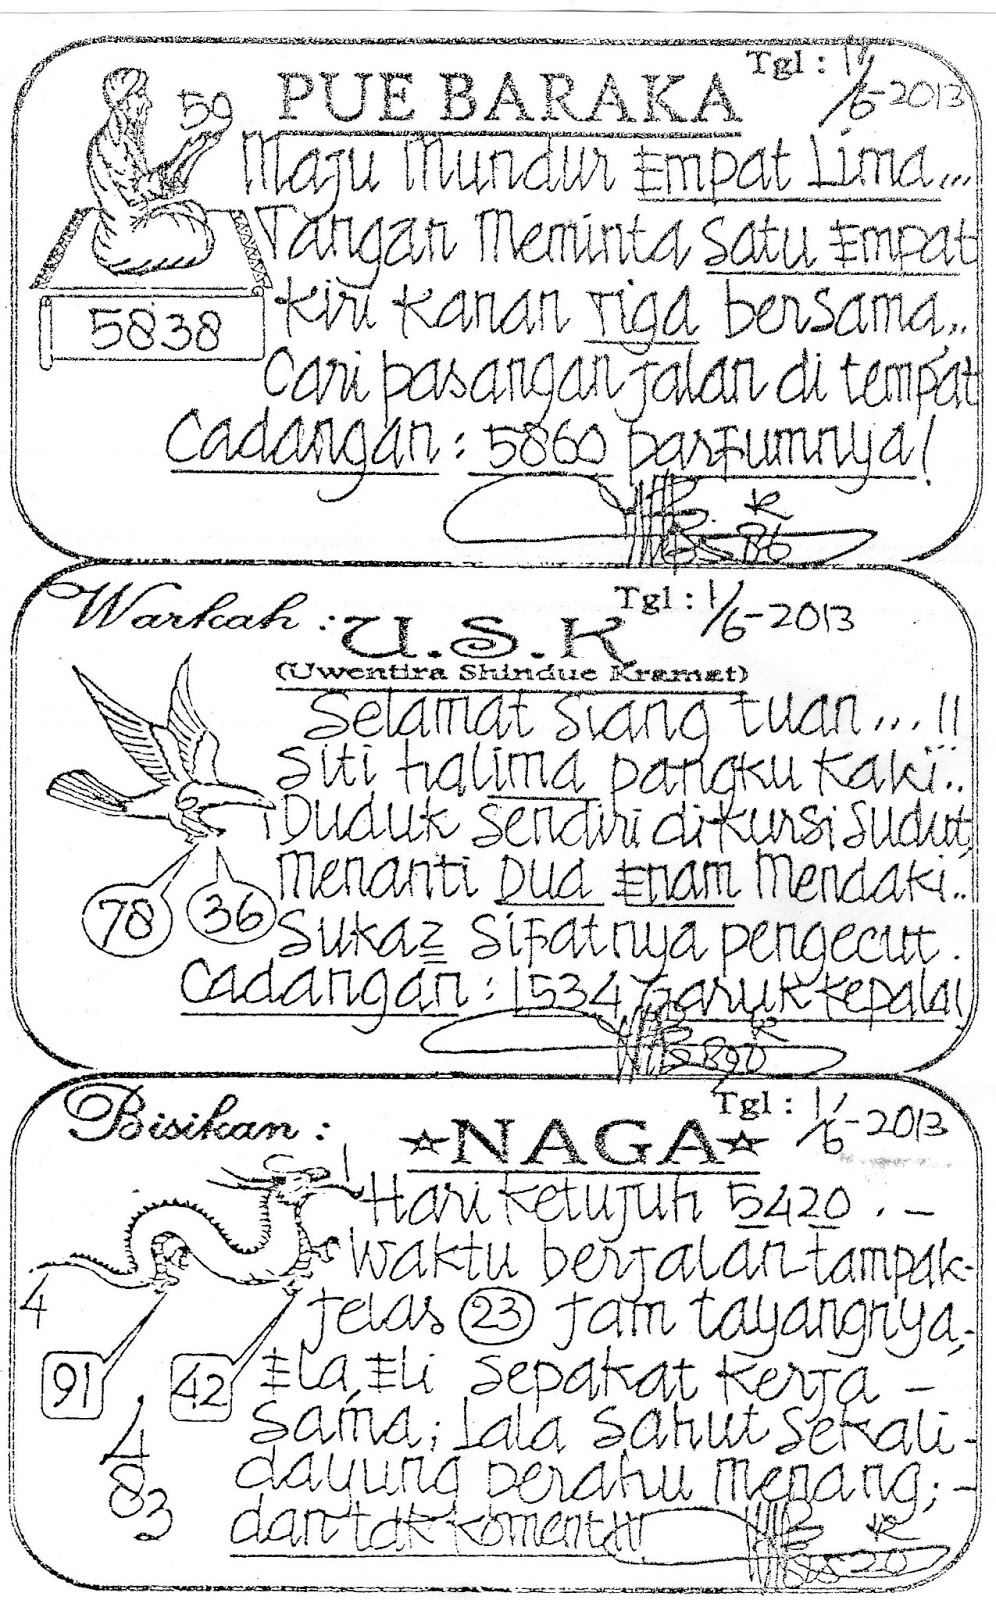 Tgl : 1/6-2013
PUE BARAKA
59
Maju Mundur Empat Lima...
Tangan Meminta Satu Empat
Kiri Kanan Tiga bersama..
5838
Cari pasangan jalan di tempat
Cadangan : 5860 parfumnya!
B. K
86
Tgl : 1/6-2013
Warkah : U.S.K
(Uwentira Shindue Kramat)
Selamat Siang tuan...!!
Siti halima pangku kaki...
Duduk sendiri di kursi sudut,
Menanti Dua Enam Mendaki..
78 36
Suka2 sifatnya pengecut.
Cadangan : 15347 garuk kepala!
B K
2890
Tgl : 1/6-2013
Bisikan : NAGA
Hari Ketujuh 5420 . -
Waktu berjalan tampak-
4
jelas 23 jam tayangnya,-
91 42
Ela, Eli sepakat kerja -
sama; Lala sahut sekali-
4
dayung perahu menang; -
83
dan tdk koment!!!
B K
20